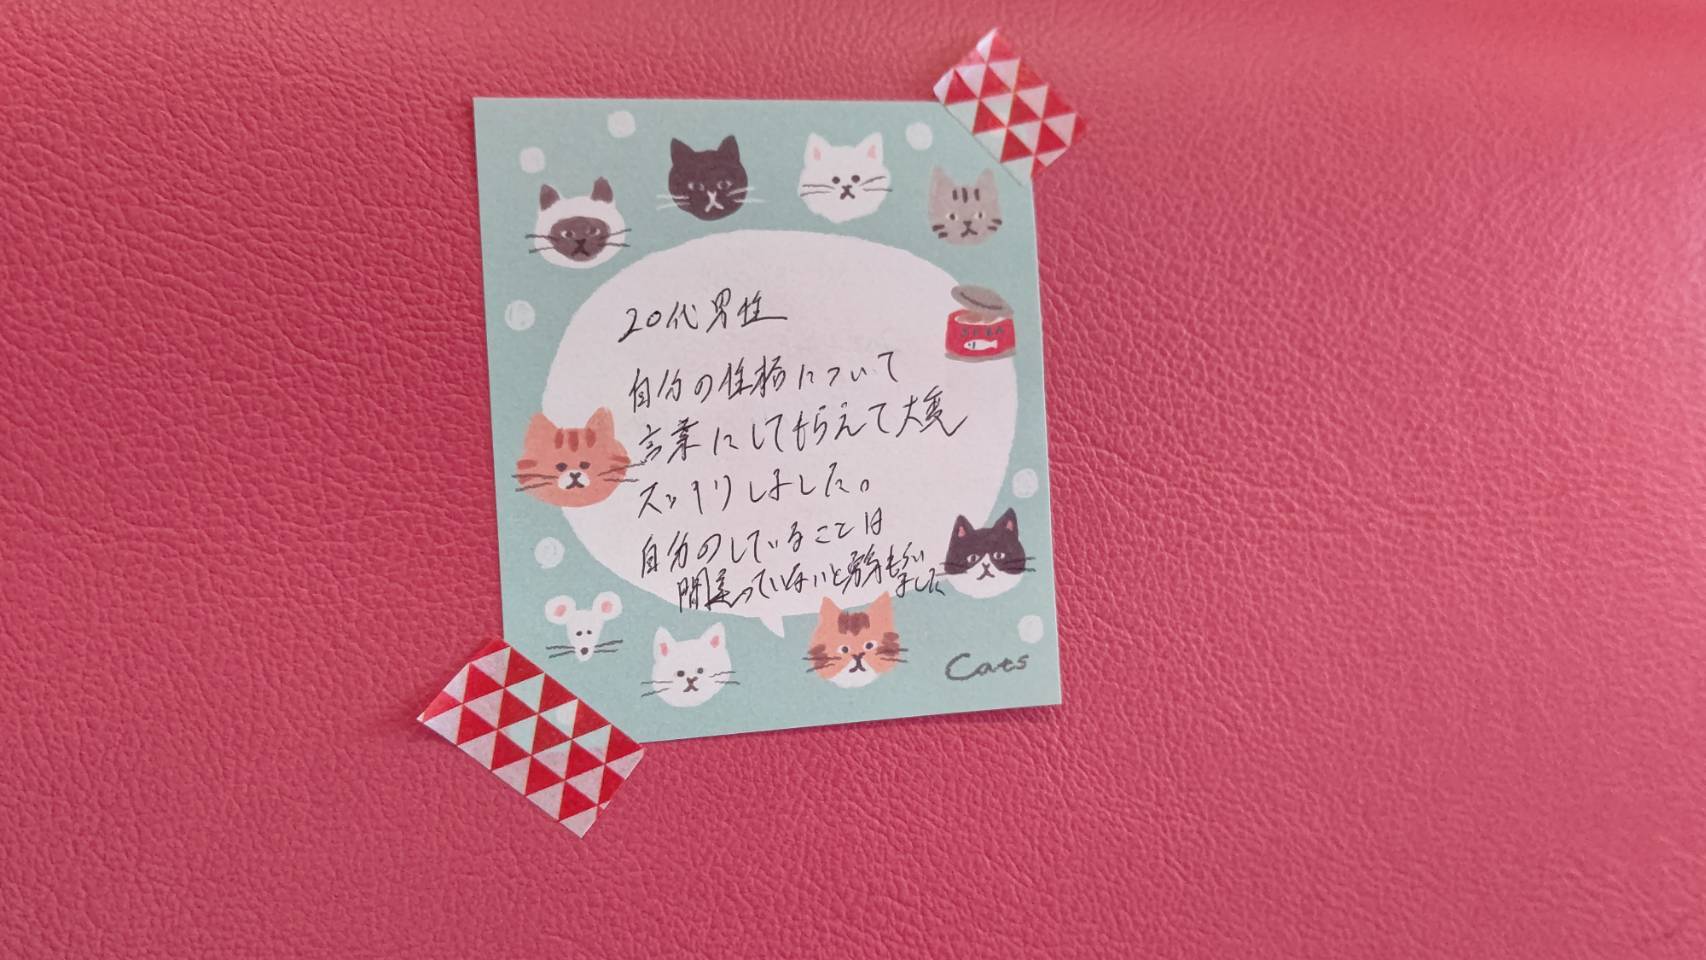 20代男性
自分の性格について
言葉にしてもらえて大変
スッキリしました。
自分のしていることは
間違っていないと勇気もらい
ました
Cats